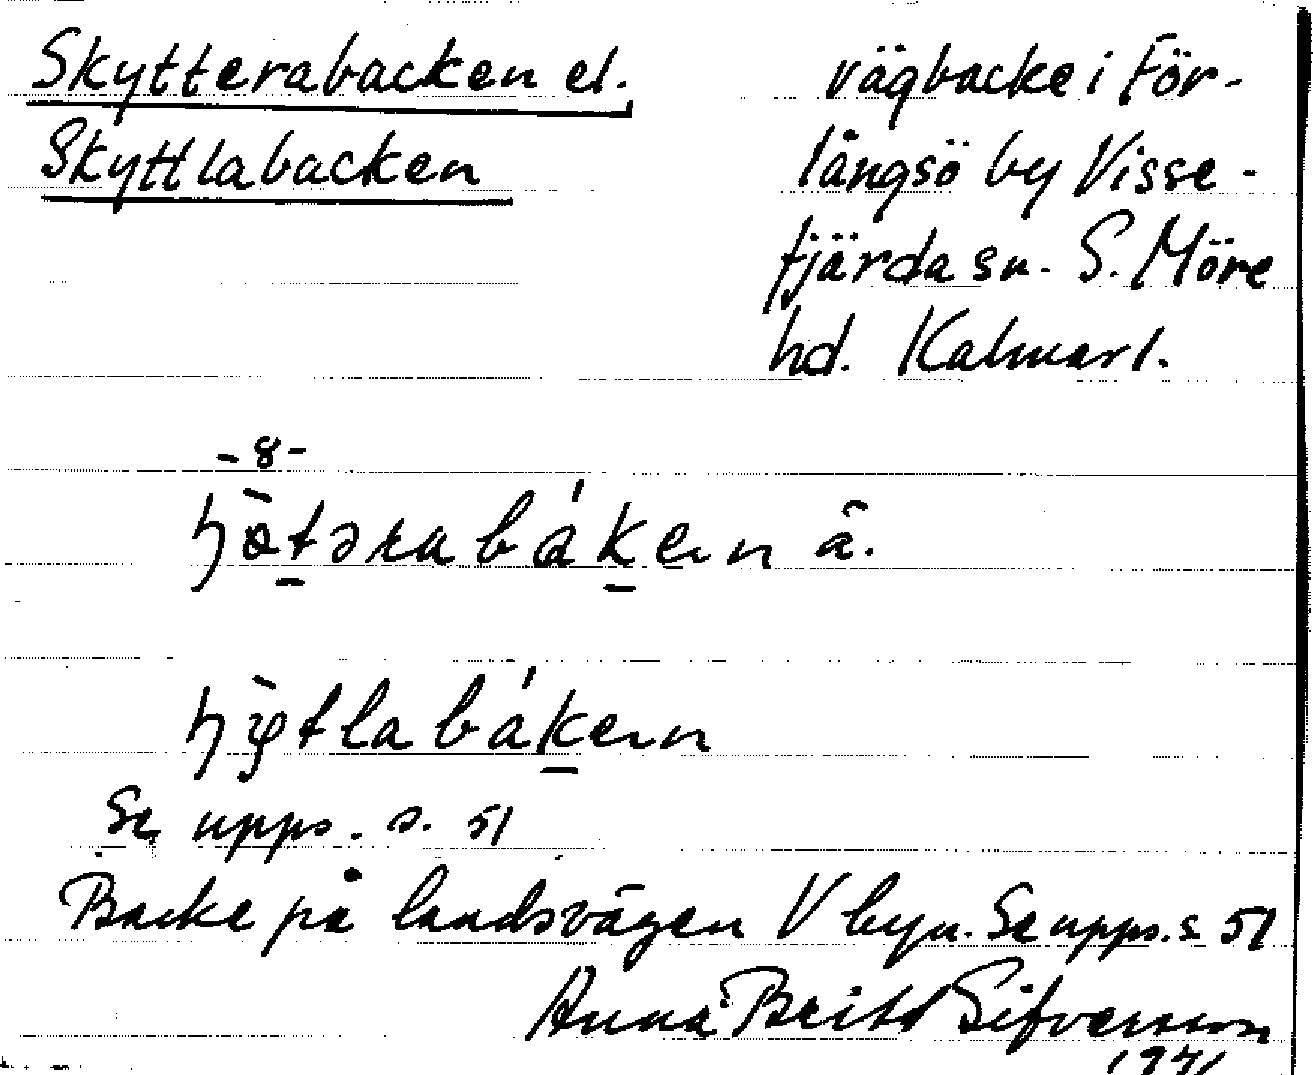 Skytterabacken el.
Skyttlabacken
vägbacke i För-
långsö by Visse-
fjärda sn. S. Möre
hd. Kalmar l.
-8-
Se upps. s. 51
Backe på landsvägen V byn. Se upps. s 51
Anna Britt Sifversson
1971